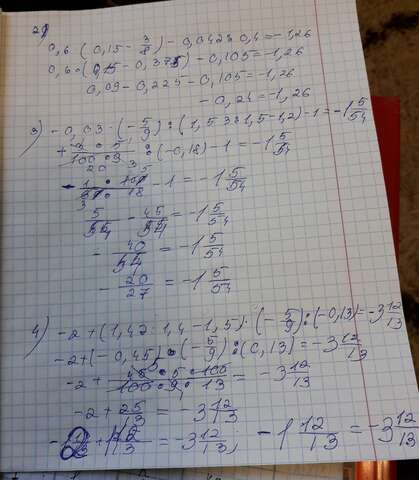 2)
0,6 (0,15 - 3/8) - 0,042 : 0,4 = -1,26
0,6 · (0,15 - 0,375) - 0,105 = -1,26
0,09 - 0,225 - 0,105 = -1,26
- 0,24 = -1,26
3) - 0,03 · (- 5/9) : (1,5 1,5 - 1,2) - 1 = -1 5/54
+ 3 · 5 / 100 · 9 : (-0,18) - 1 = -1 5/54
- 1 - 1 = -1 5/54
5/54 - 45/54 = -1 5/54
- 40/54 = -1 5/54
- 20/27 = -1 5/54
4) -2 + (1,47 : 1,4 - 1,5) · (- 5/9) : (-0,13) = -3 12/13
-2 + (-0,45) · (- 5/9) : (0,13) = -3 12/13
-2 + 45 · 5 · 100 / 100 · 9 · 13 = -3 12/13
-2 + 25/13 = -3 12/13
= -3 12/13, -1 12/13 = -3 12/13